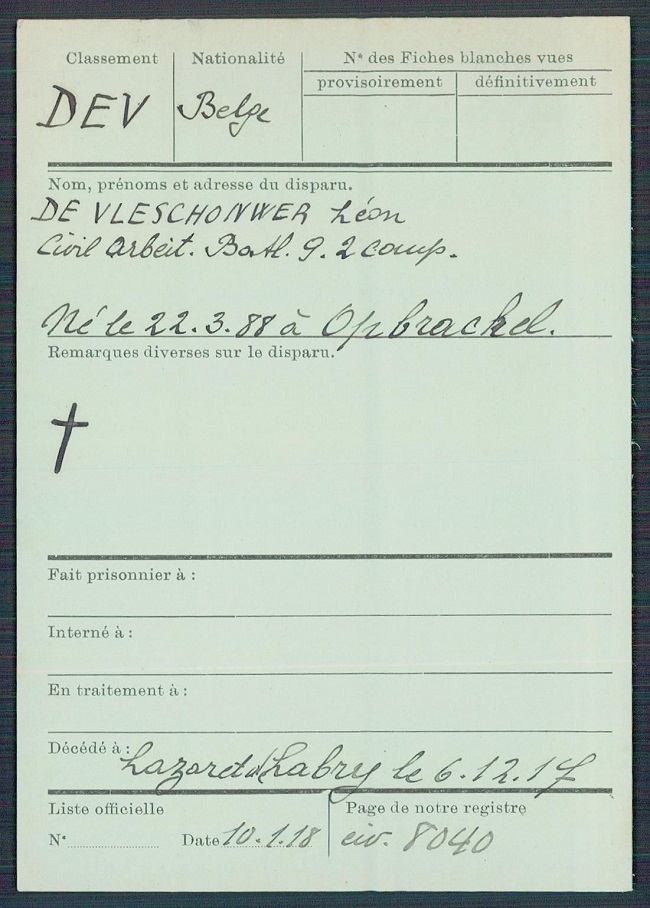 Classement Nationalité N° des Fiches blanches vues
provisoirement définitivement
DEV Belge
Nom, prénoms et adresse du disparu.
DE VLESCHONWER Léon
Civil Arbeit. Batl. 9. 2 comp.
Né le 22.3.88 à Opbrackel.
Remarques diverses sur le disparu.
†
Fait prisonnier à :
Interné à :
En traitement à :
Décédé à : Lazaret de Labry le 6.12.17
Liste officielle Page de notre registre
N° Date 10.1.18 civ. 8040